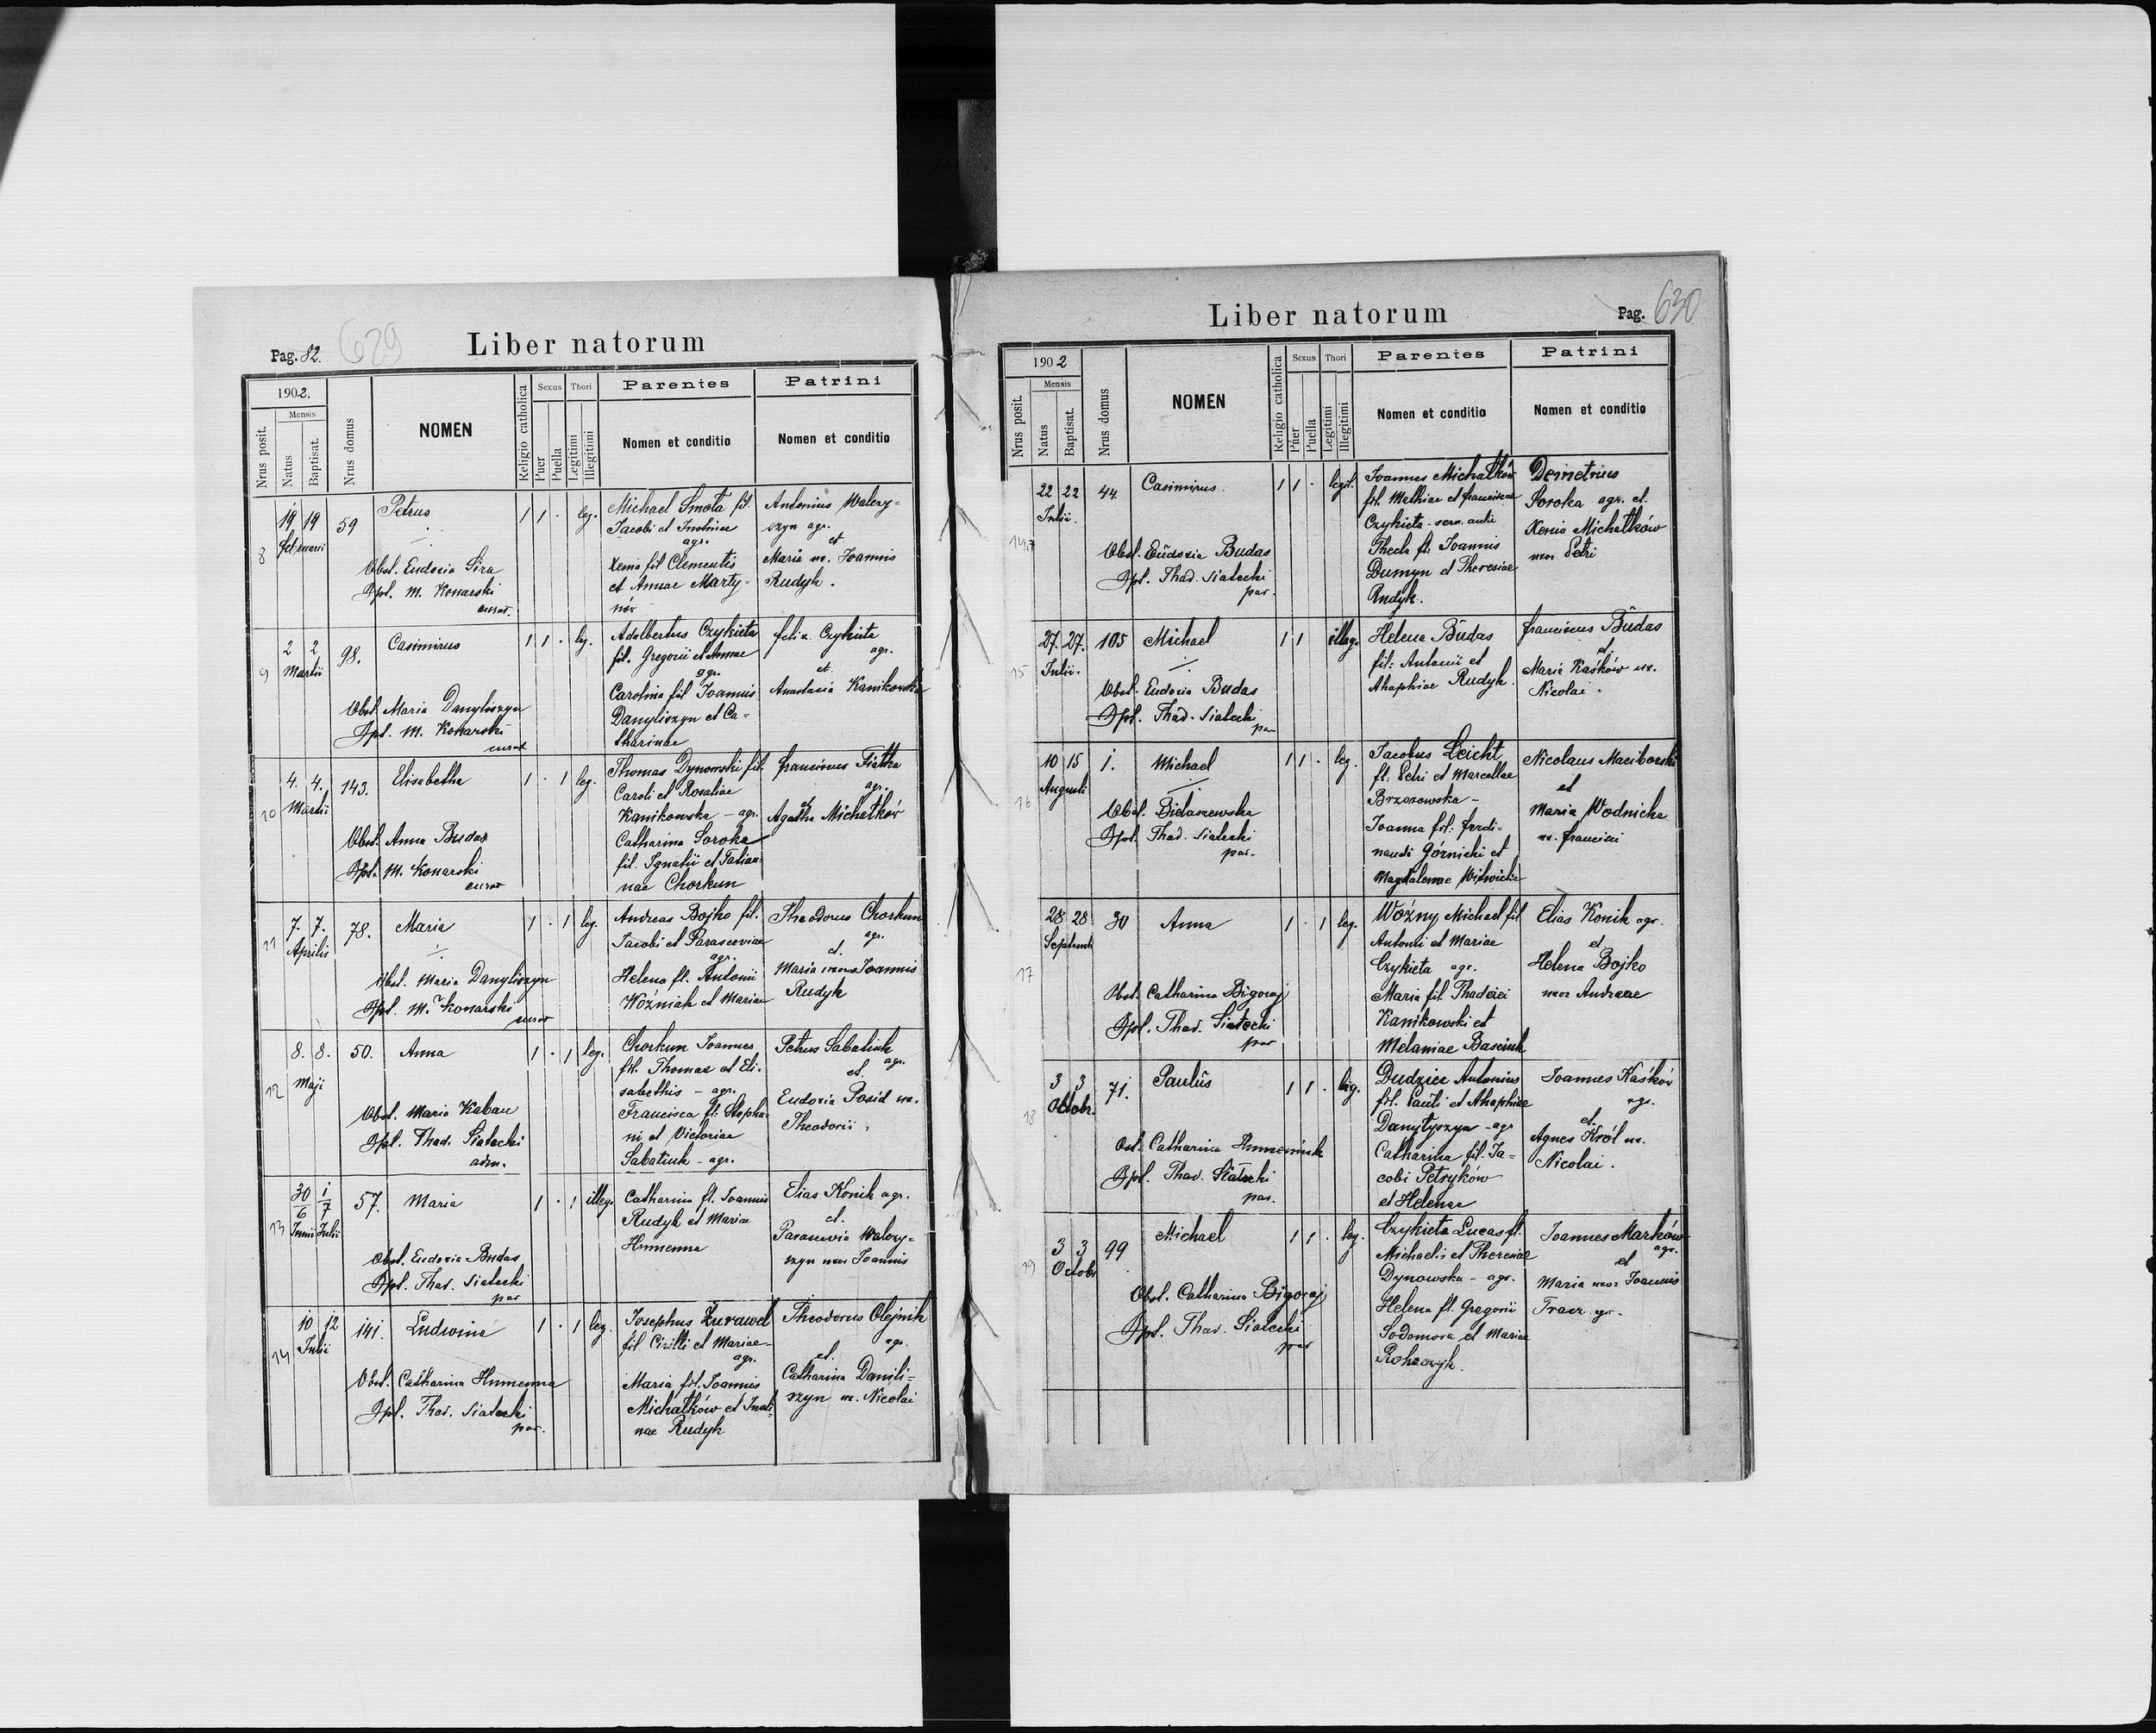 Pag. 82.
629
Liber natorum
1902.
Nrus posit.
Mensis
Natus
Baptisat.
Nrus domus
NOMEN
Religio catholica
Sexus
Puer
Puella
Thori
Legitimi
Illegitimi
Parentes
Nomen et conditio
Patrini
Nomen et conditio
8
19 19
Februarii
59
Petrus
Obst. Eudoxia Sira
Bpt. M. Konarski
curat.
1 1 . leg.
Michael Smota fil.
Jacobi et Justinae
agr.
Xenia fil Clementis
et Annae Marty-
nów
Antonius Walczy-
szyn agr.
et
Maria ux. Joannis
Rudyk.
9
2 2
Martii
98.
Casimirus
Obst. Maria Danyliszyn
Bpt. M. Konarski
curat
1 1 . leg.
Adalbertus Czykieta
fil. Gregorii et Annae
agr.
Carolina fil Joannis
Danyliszyn et Ca-
tharinae
Felix Czykieta
agr.
et
Anastasia Kanikowska
10
4. 4.
Martii
143.
Elisabetha
Obst. Anna Budas
Bpt. M. Konarski
curat
1 . 1 leg.
Thomas Dynowski fil.
Caroli et Rosaliae
Kanikowska - agr.
Catharina Soroka
fil. Ignatii et Tatian-
nae Chorkun
Franciscus Fiałka
agr.
et
Agatha Michałków
11
7. 7.
Aprilis
78.
Maria
Obst. Maria Danyliszyn
Bpt. M. Konarski
curat
1 . 1 leg.
Andreas Bojko fil.
Jacobi et Parasceviae
agr.
Helena fl. Antonii
Woźniak et Mariae
Theodorus Chorkun
agr.
et.
Maria uxor Joannis
Rudyk
12
8. 8.
Maji
50.
Anna
Obst. Maria Kaban
Bpt. Thad. Siatecki
adm.
1 . 1 leg.
Chorkun Joannes
fil. Thomae et Eli-
sabethis - agr.
Francisca fl. Stepha-
ni et Victoriae
Sabatiuk - agr.
Petrus Sabatiuk
agr.
et.
Eudoxia Posid ux.
Theodorii,
13
30 1
6 7
Junii Julii
57.
Maria
Obst. Eudoxia Budas
Bpt. Thad. Siatecki
par
1 . 1 illeg.
Catharina fl. Joannis
Rudyk et Mariae
Humenna
Elias Konik agr.
et.
Parascevia Walczy-
szyn uxor Joannis
14
10 12
Julii
141.
Ludwina
Obst. Catharina Humenna
Bpt. Thad. Siatecki
par.
1 . 1 leg.
Josephus Żurawel
fil Cirilli et Mariae
agr.
Maria fil. Joannis
Michałków et Justi-
nae Rudyk
Theodorus Olejnik
agr.
et.
Catharina Danili-
szyn ux. Nicolai
Liber natorum
Pag. 630
1902
Nrus posit.
Mensis
Natus
Baptisat.
Nrus domus
NOMEN
Religio catholica
Sexus
Puer
Puella
Thori
Legitimi
Illegitimi
Parentes
Nomen et conditio
Patrini
Nomen et conditio
22 22
Julii.
44.
Casimirus
Obst. Eudoxia Budas
Bpt. Thad. Siatecki
par.
1 1 . legit.
Joannes Michałków
fil. Mathiae et Franciscae
Czykieta
Thecla fl. Joannis
Dumyn et Theresiae
Rudyk.
Demetrius
Soroka agr. et.
Xenia Michałków
uxor Petri
15
27. 27.
Julii.
105
Michael
Obst. Eudoxia Budas
Bpt. Thad. Siatecki
par
1 1 illeg.
Helena Budas
fil: Antonii et
Ahaphiae Rudyk.
Franciscus Budas
et
Maria Kaśków ux.
Nicolai.
16
10 15
Augusti
1.
Michael
Obst. Bidaszewska
Bpt. Thad. Siatecki
par.
1 1 . leg.
Jacobus Leicht
fl. Petri et Marcellae
Brzozowska -
Joanna fil: Ferdi-
nandi Górnicki et
Magdalenae Witwicka
Nicolaus Maciborski
et
Maria Wodnicka
ux. Francisci
17
28 28
Septemb
30
Anna
Obst. Catharina Bigoraj
Bpt. Thad. Siatecki
par
1 . 1 leg.
Woźny Michael fil
Antonii et Mariae
Czykieta agr.
Maria fil. Thadaei
Kanikowski et
Melaniae Basciuk
Elias Konik agr.
et
Helena Bojko
uxor Andreae
18
3 3
Octobr.
71.
Paulus
Obst. Catharina Humeniuk
Bpt. Thad. Siatecki
par.
1 1 . leg.
Dudzicz Antonius
fil. Pauli et Ahaphiae
Danyłyszyn - agr
Catharina fil. Ja-
cobi Petryków
et Helenae
Joannes Kaśków
agr.
et.
Agnes Król ux.
Nicolai.
19
3 3
Octobr
99
Michael
Obst. Catharina Bigoraj
Bpt. Thad. Siatecki
par
1 1 . leg.
Czykieta Lucas fl.
Michaelis et Theresiae
Dynowska - agr.
Helena fl. Gregorii
Sodomora et Mariae
Rohaczyk.
Joannes Marków
agr.
et
Maria uxor Joannis
Tracz agr.